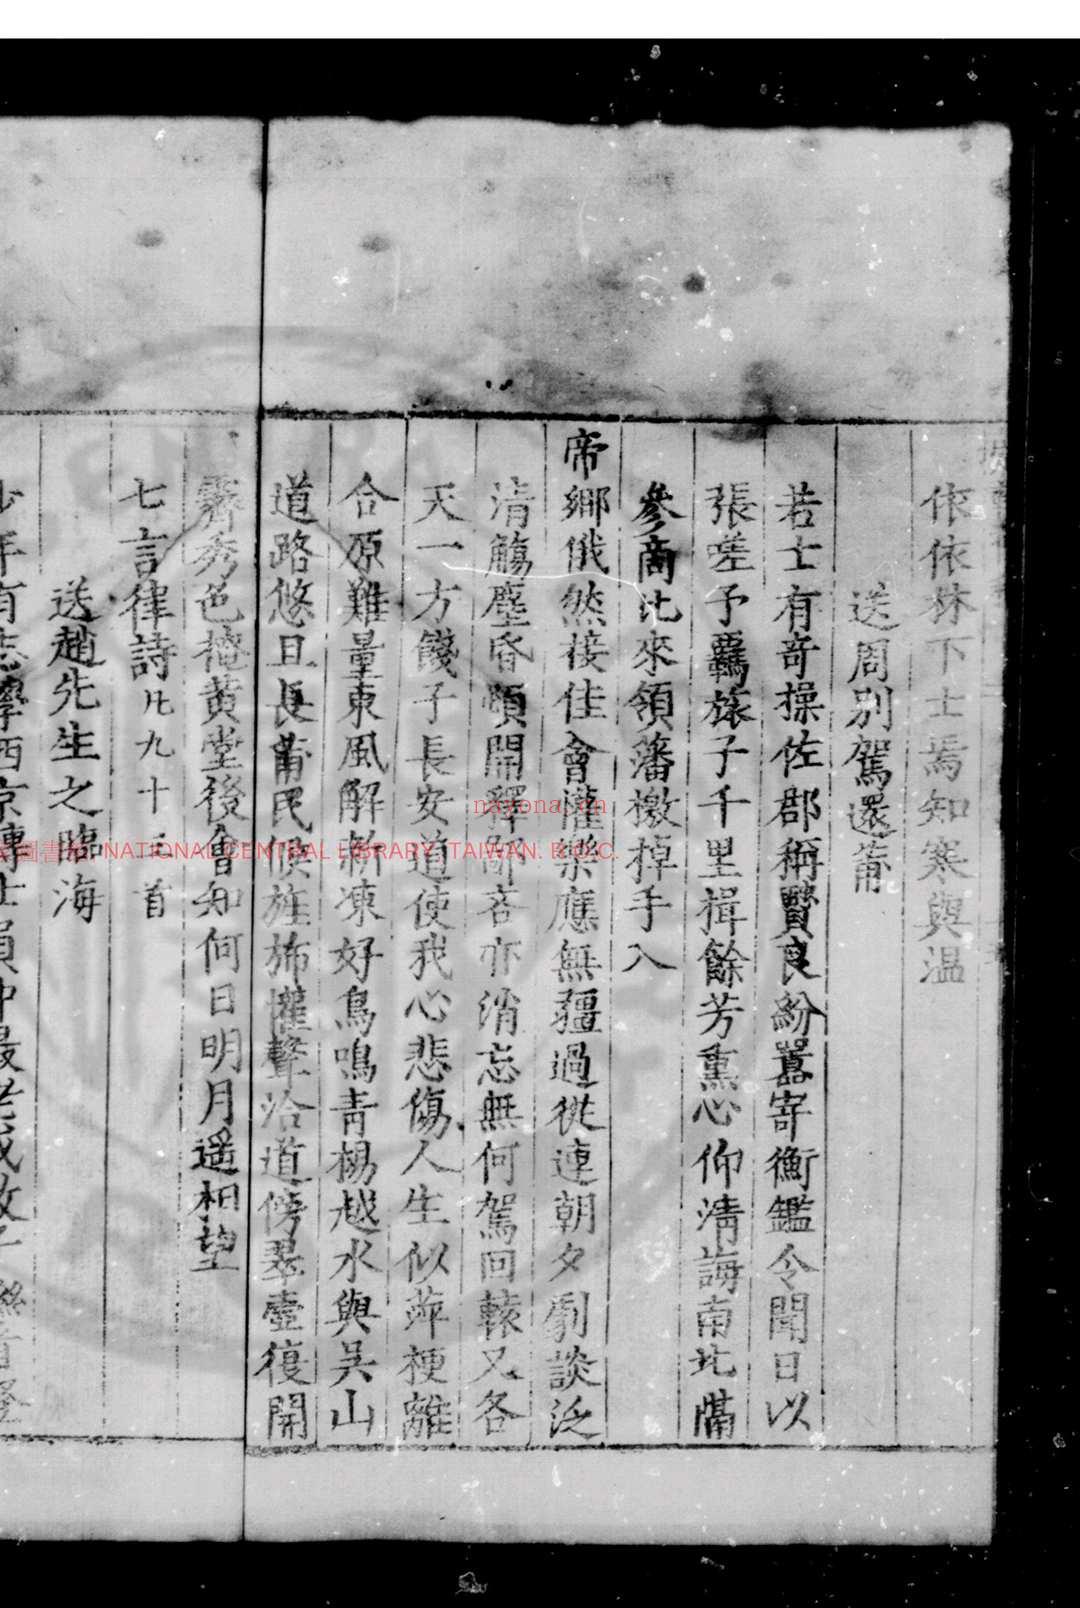 依依林下士焉知寒與温
送周別駕還莆
若士有竒操佐郡稱賢良紛囂寄衡鑑令聞日以
張嗟予羈旅子千里揖餘芳熏心仰清誨南北隔
參商比來領藩檄掉手入
帝鄉俄然接佳會灌樂應無疆過從連朝夕劇談泛
清觴塵昏頓開釋鄙吝亦消忘無何駕回轅又各
天一方餞子長安道使我心悲傷人生似萍梗離
合原難量東風解新凍好鳥鳴青楊越水與吳山
道路悠且長莆民候旌斾懽聲洽道傍羣壺復開
霽秀色掩黄堂後會知何日明月遥相望
七言律詩凡九十三首
送趙先生之臨海
少年有志學西京博士員中最老成
NATIONAL CENTRAL LIBRARY, TAIWAN. R.O.C.
nayona.cn